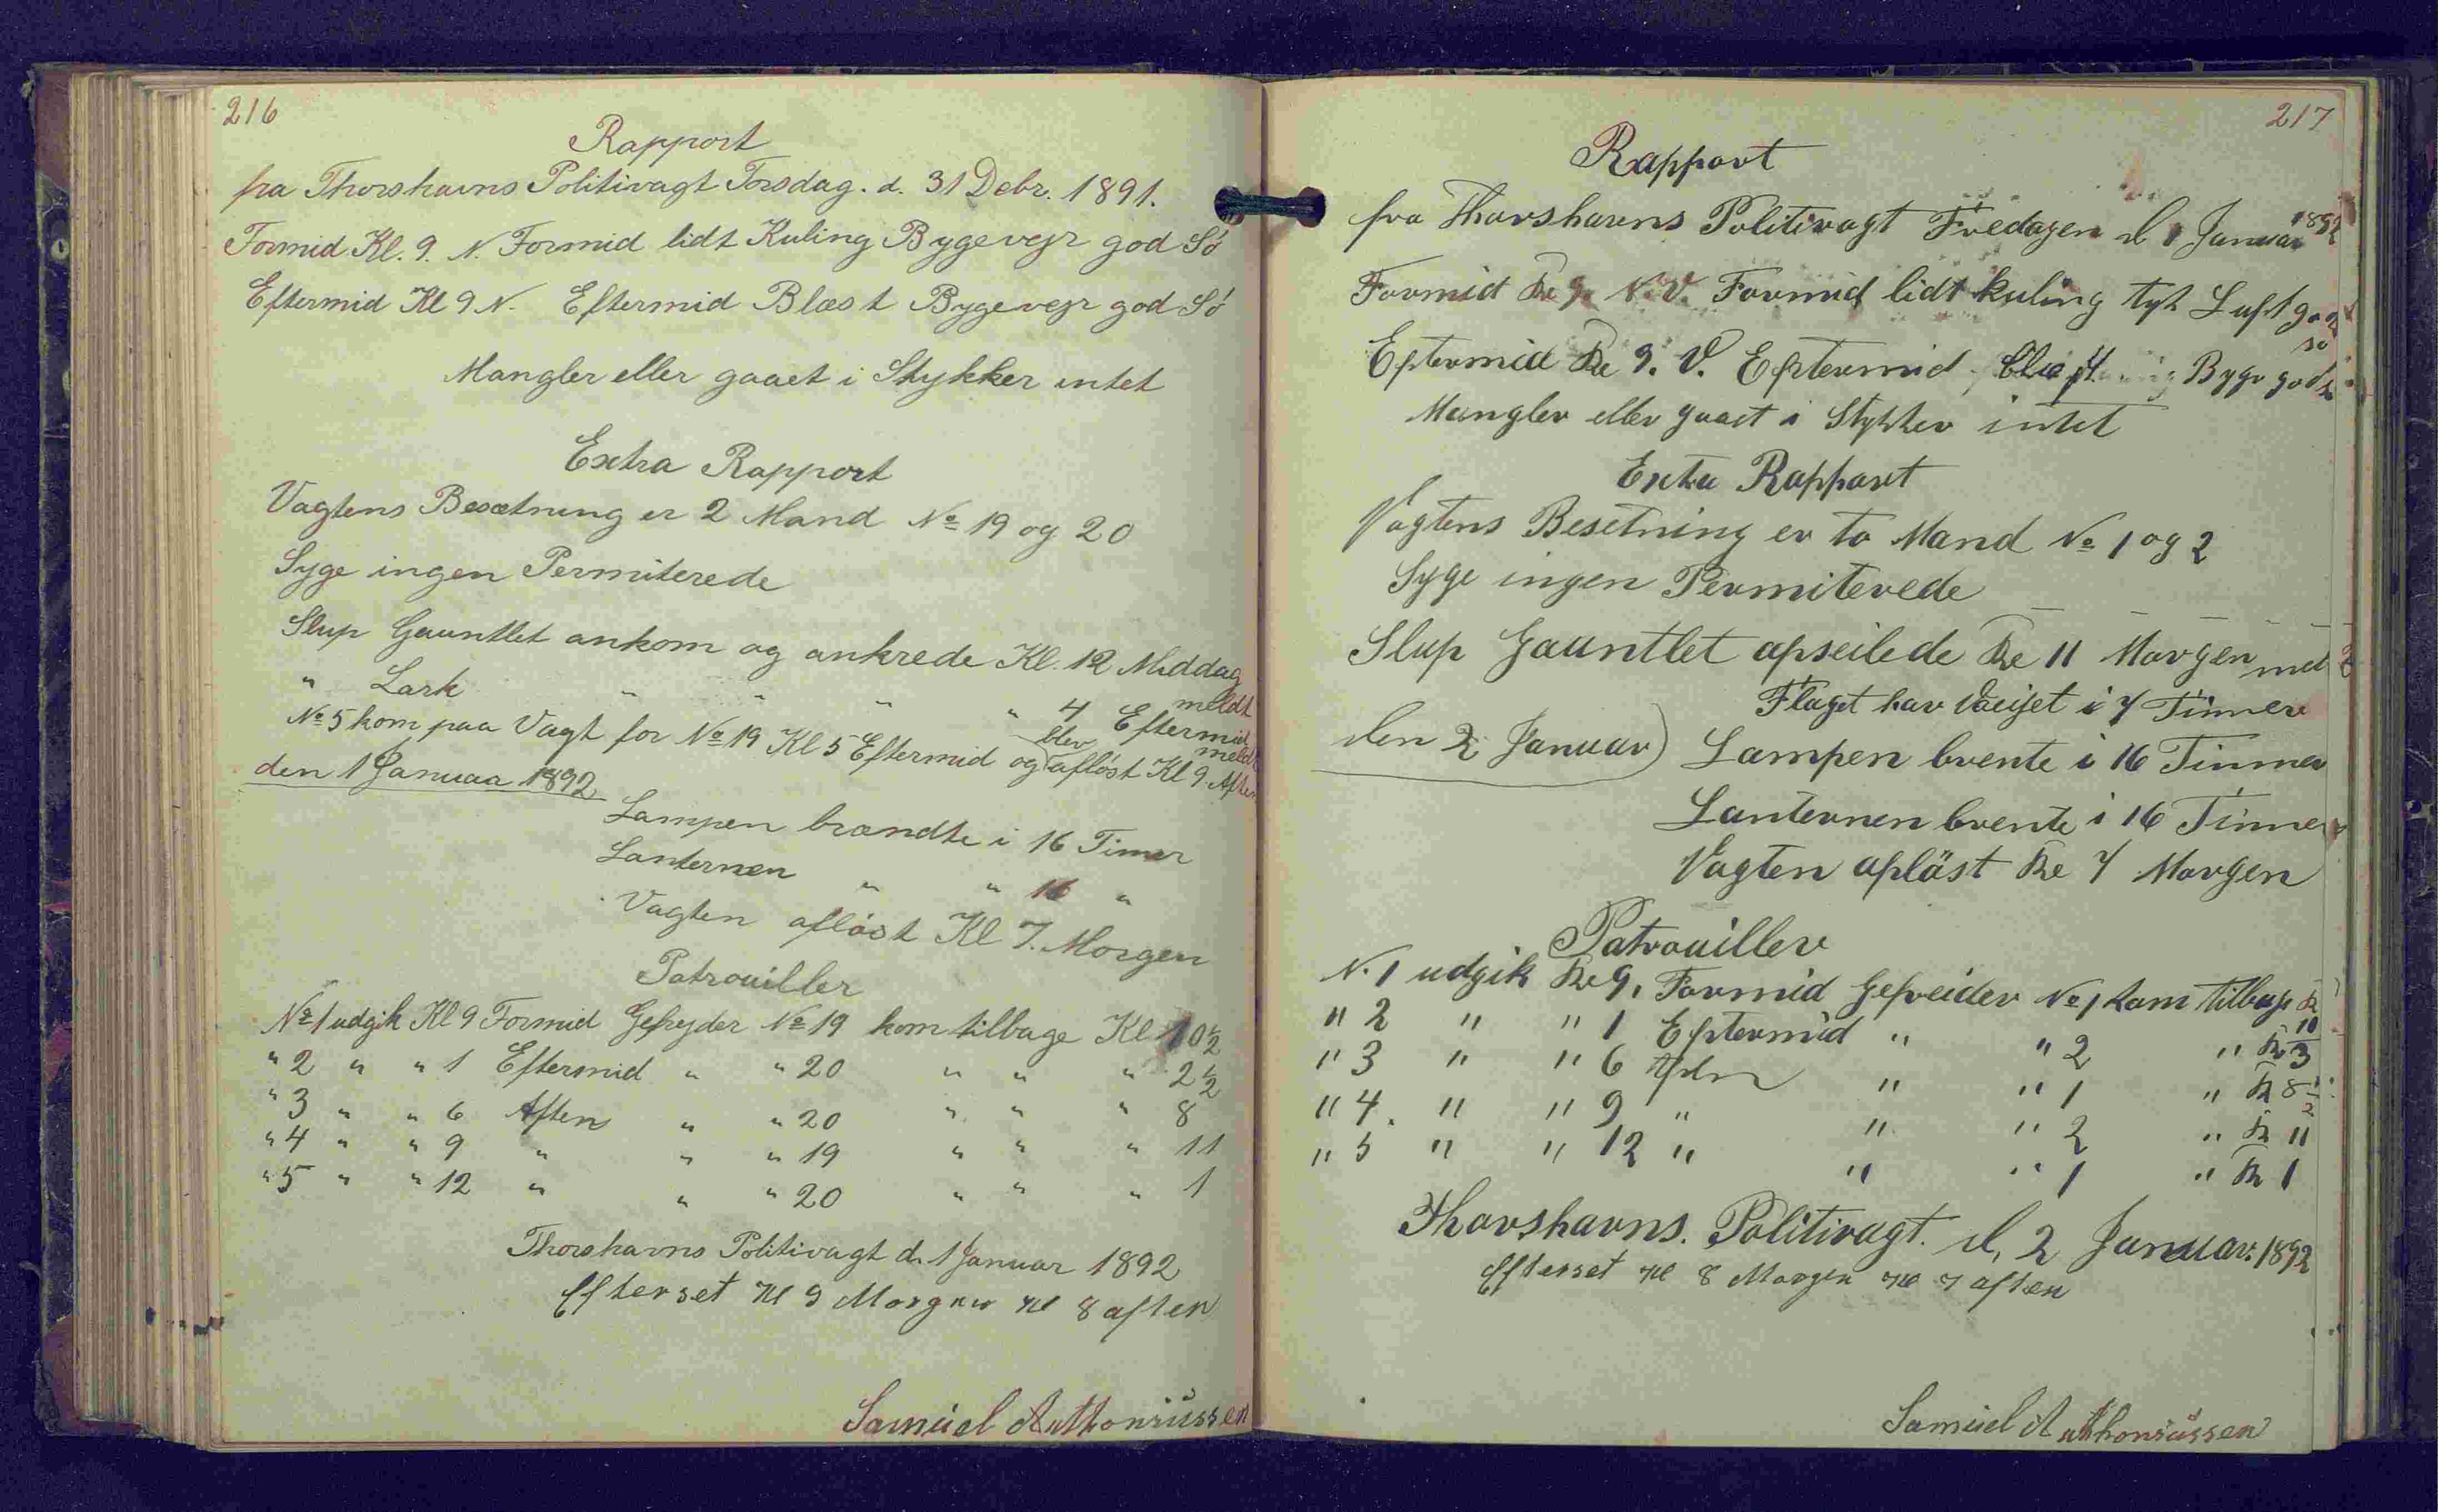 216
Rapport
fra Thorshavns Politivagt Torsdag. d. 31 Debr. 1891.
Formid Kl. 9. N. Formid lidt Kuling Bygevejr god Sö
Eftermid Kl 9 N. Eftermid Blæst Bygevejr god Sö
Mangler eller gaaet i Stykker intet
Extra Rapport
Vagtens Besætning er 2 Mand No 19 og 20
Syge ingen Permiterede
Slup Gauntlet ankom og ankrede Kl. 12 Middag meldt
" Lark " " " " 4 Eftermid meldt
No 5 kom paa Vagt for No 19 Kl 5 Eftermid og blev aflöst Kl 9 Aften
den 1 Januaa 1892
Lampen brændte i 16 Timer
Lanternen " " 16 "
Vagten aflöst Kl 7. Morgen
Patrouiller
No 1 udgik Kl 9 Formid Gefrejder No 19 kom tilbage Kl 10½
" 2 " " 1 Eftermid " " 20 " " " 2½
" 3 " " 6 Aften " " 20 " " " 8
" 4 " " 9 " " " 19 " " " 11
" 5 " " 12 " " " 20 " " " 1
Thorshavns Politivagt d. 1 Januar 1892
Efterset Kl 9 Morgen Kl 8 aften
Samuel Anthoniussen
217
Rapport
fra Thorshavns Politivagt Fredagen d 1 Januar 1892
Formid Kl 9. N.V. Formid lidt kuling tyk Luft god sö
Eftermid Kl 9. V. Eftermid Blæst Byge god
Mangler eller gaaet i Stykker intet
Extra Rapport
Vagtens Besetning er to Mand No 1 og 2
Syge ingen Permiterede
Slup Gauntlet afseilede Kl 11 Morgen med
Flaget har Vaeijet i 7 Timer
den 2 Januar) Lampen brente i 16 Timer
Lanternen brente i 16 Timer
Vagten aflöst Kl 7 Morgen
Patrouiller
N. 1 udgik Kl 9, Formid Gefreider No 1 kom tilbage Kl 11
" 2 " " 1 Eftermid " " 2 " Kl 3
" 3 " " 6 Aften " " 1 " Kl 8½
" 4. " " 9 " " " 2 " Kl 11
" 5 " " 12 " " " 1 " Kl 1
Thorshavns. Politivagt. d, 2 Januar. 1892
Efterset Kl 8 Morgen Kl 7 aften
Samuel Anthoniussen